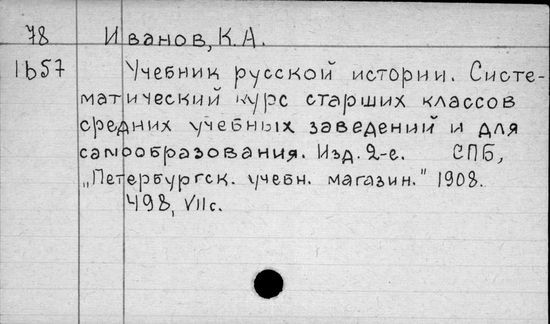 78 Иванов, К.А.
1b57 Учебник русской истории. Систе-
матический курс старших классов
средних учебных заведений и для
самообразования. Изд. 2-е. СПБ,
„Петербургск. учебн. магазин." 1908.
498, VII с.